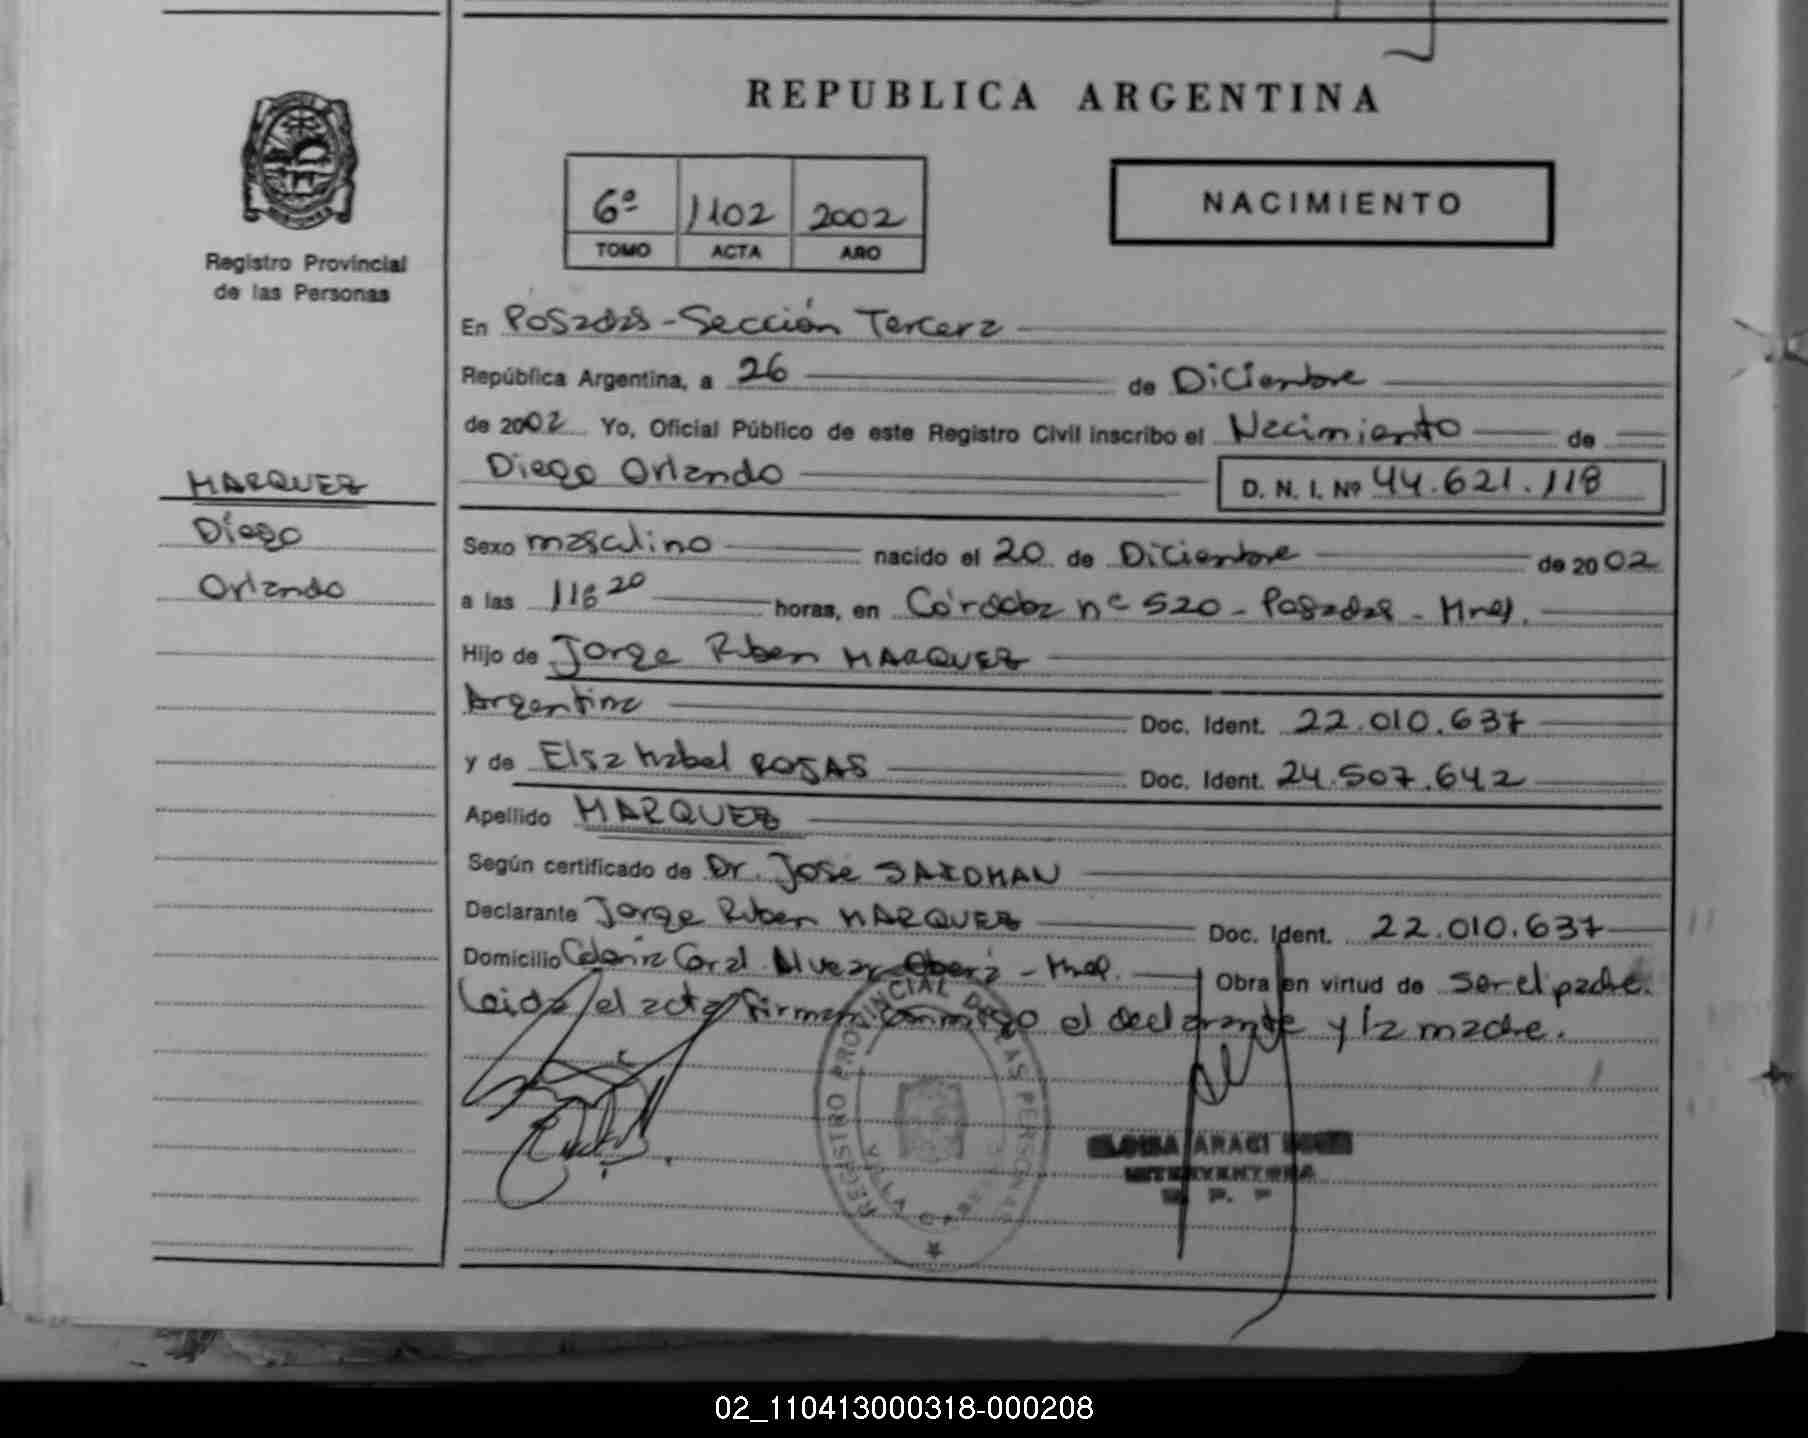 REPUBLICA ARGENTINA
6º 1102 2002
TOMO ACTA AÑO
NACIMIENTO
Registro Provincial
de las Personas
En Posadas - Sección Tercera
República Argentina, a 26 de Diciembre
de 2002 Yo, Oficial Público de este Registro Civil inscribo el Nacimiento de
Diego Orlando D. N. I. Nº 44.621.118
MARQUEZ
Diego
Orlando
Sexo masculino nacido el 20 de Diciembre de 2002
a las horas, en Córdoba nº 520 - Posadas - Mnes.
Hijo de Jorge Ruben MARQUEZ
Argentina Doc. Ident. 22.010.637
y de Elsa Mabel ROJAS Doc. Ident. 24.507.642
Apellido MARQUEZ
Según certificado de Dr. José
Declarante Jorge Ruben MARQUEZ Doc. Ident. 22.010.637
Domicilio Colonia Gral. Alvear Oberá - Mnes. Obra en virtud de ser el padre.
Leida el acta firman conmigo el declarante y la madre.
REGISTRO PROVINCIAL DE LAS PERSONAS
VILLA CABELLO
ARACI
INTERVENTORA
R. P. P
02_110413000318-000208